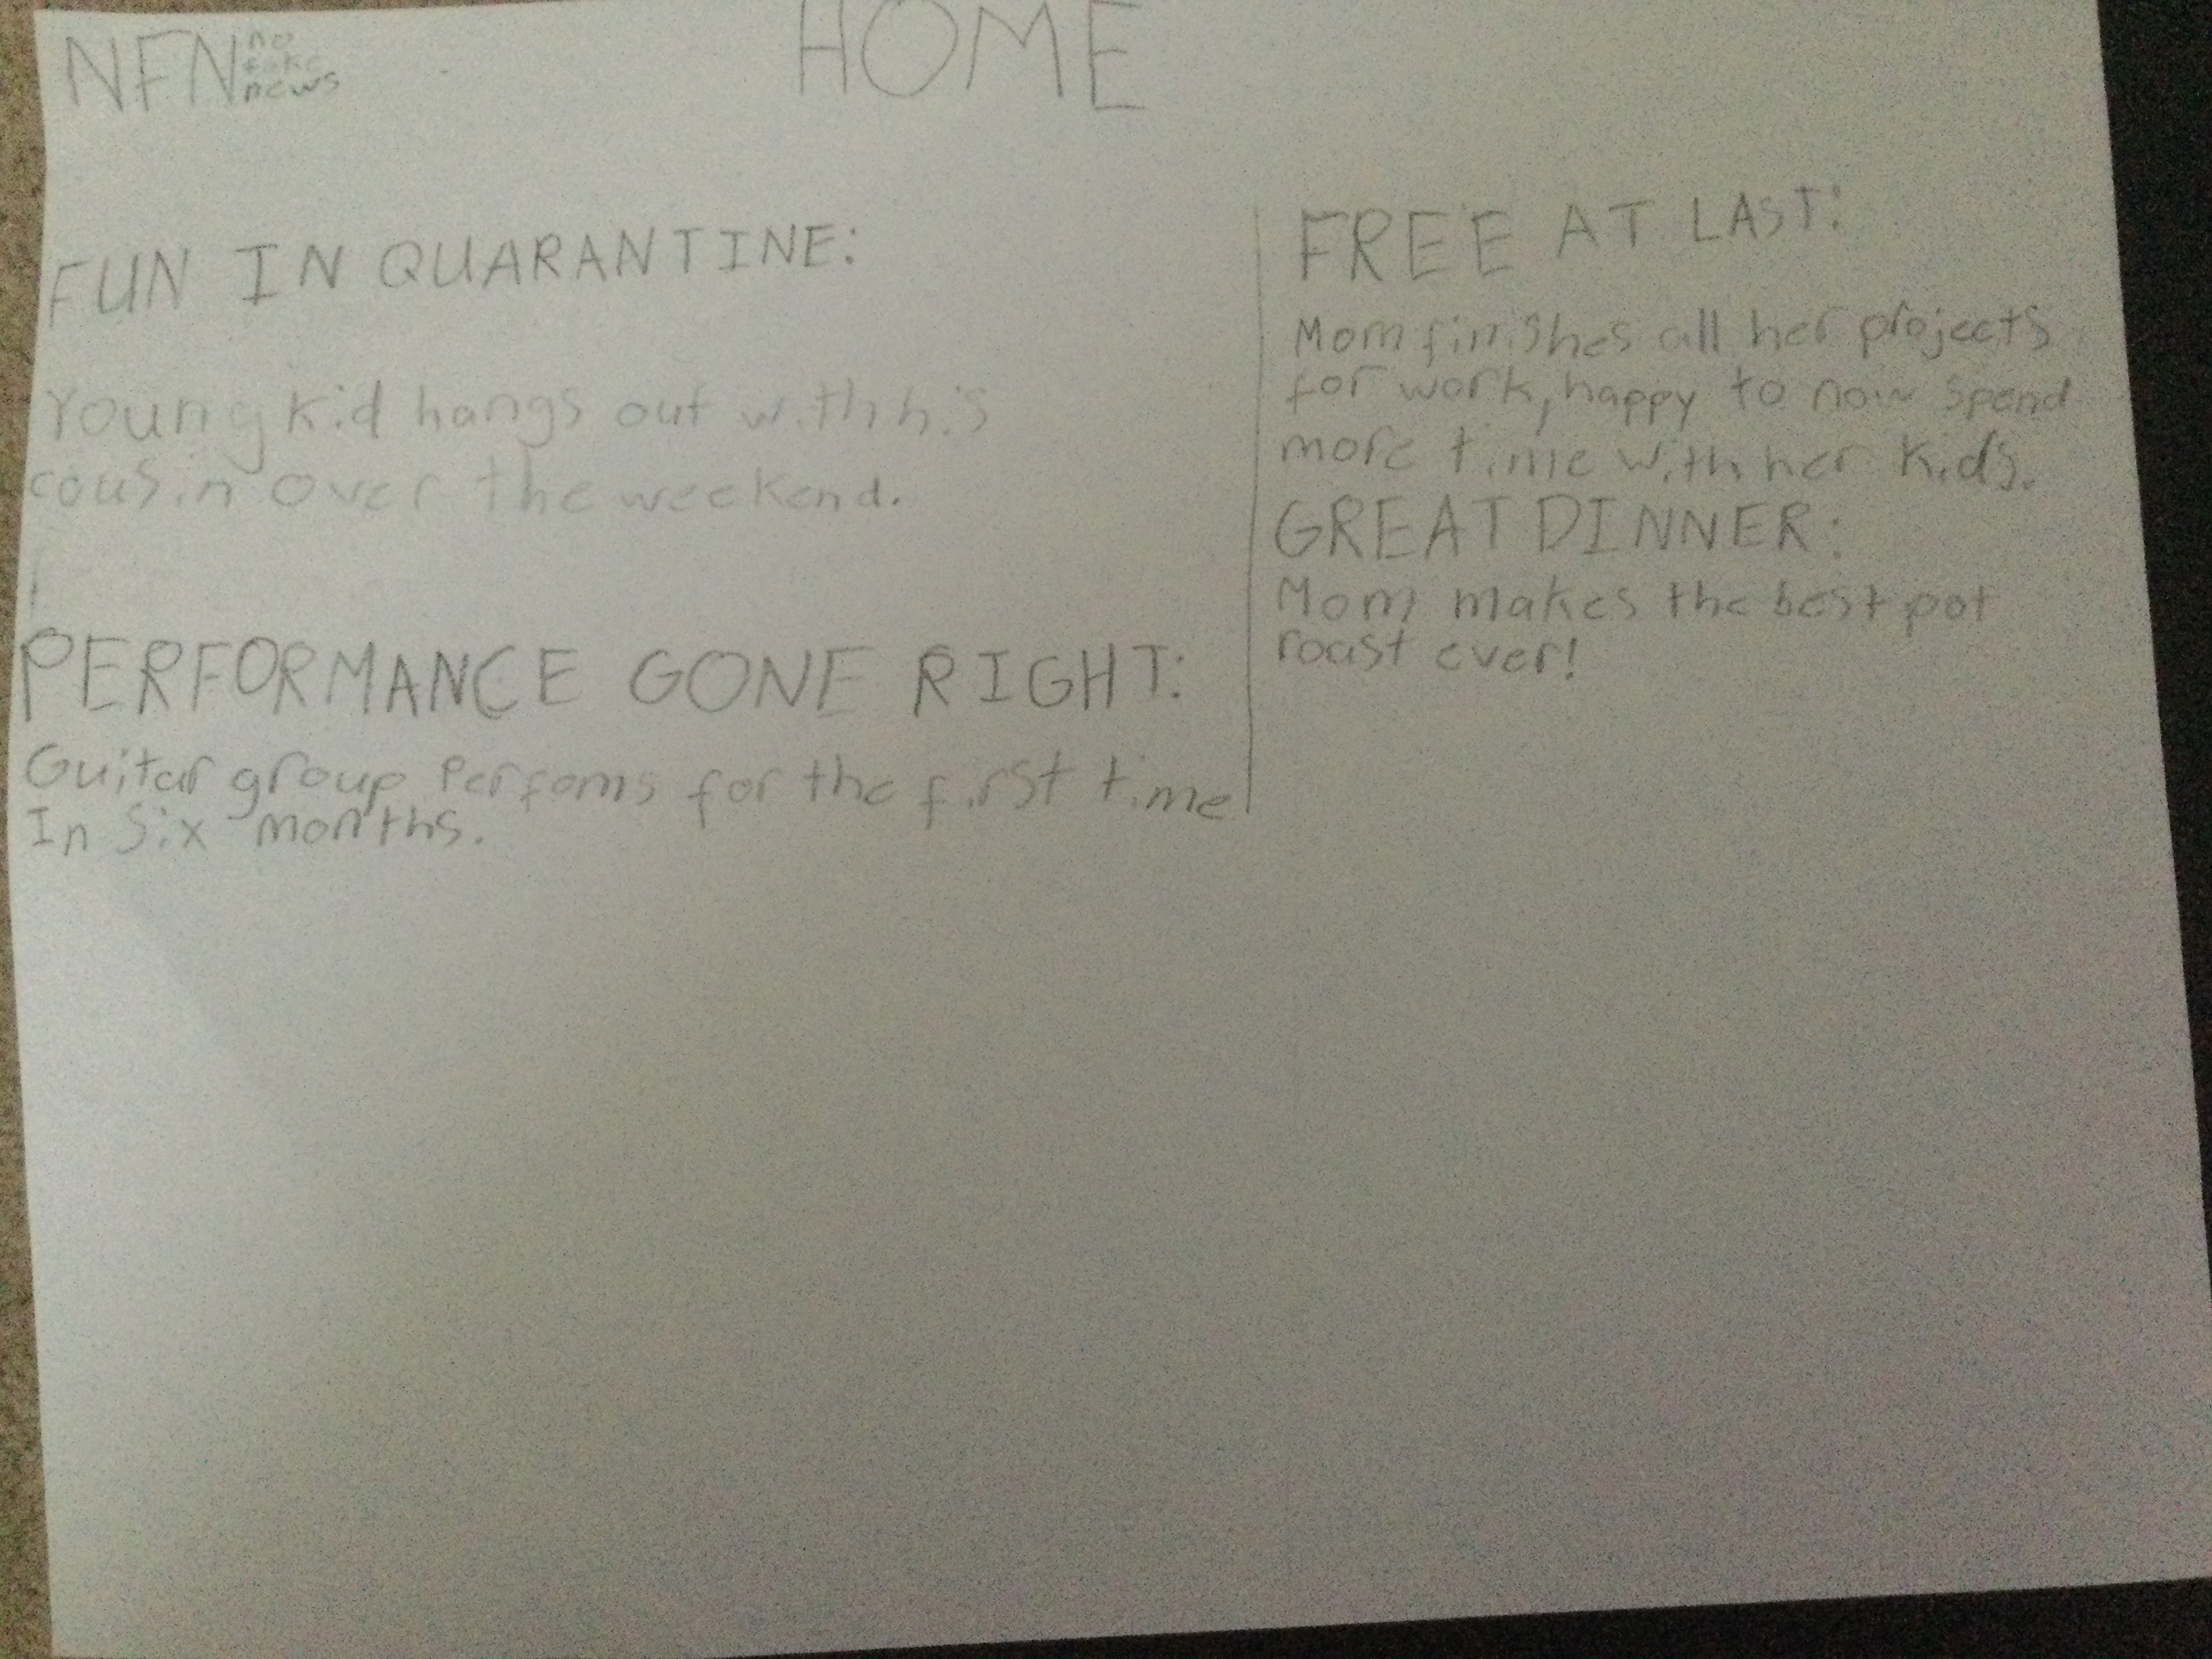 NFN no
fake
news
HOME
FUN IN QUARANTINE:
Young kid hangs out with his
cousin over the weekend.
PERFORMANCE GONE RIGHT:
Guitar group Perfoms for the first time
In Six months.
FREE AT LAST:
Mom finishes all her projects
for work, happy to now spend
more time with her kids.
GREAT DINNER:
Mom makes the best pot
roast ever!